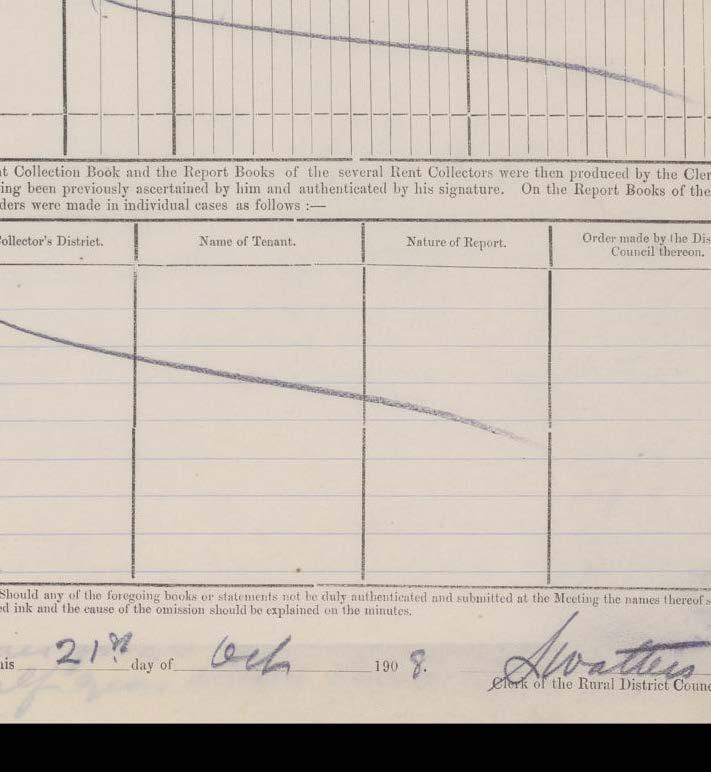 t Collection Book and the Report Books of the several Rent Collectors were then produced by the Cler
ing been previously ascertained by him and authenticated by his signature. On the Report Books of the
ders were made in individual cases as follows :—
ollector's District. Name of Tenant. Nature of Report. Order made by the Dis
Council thereon.
Should any of the foregoing books or statements not be duly authenticated and submitted at the Meeting the names thereof s
ed ink and the cause of the omission should be explained on the minutes.
his 21st day of Oct 1908. SWatters
Clerk of the Rural District Counc